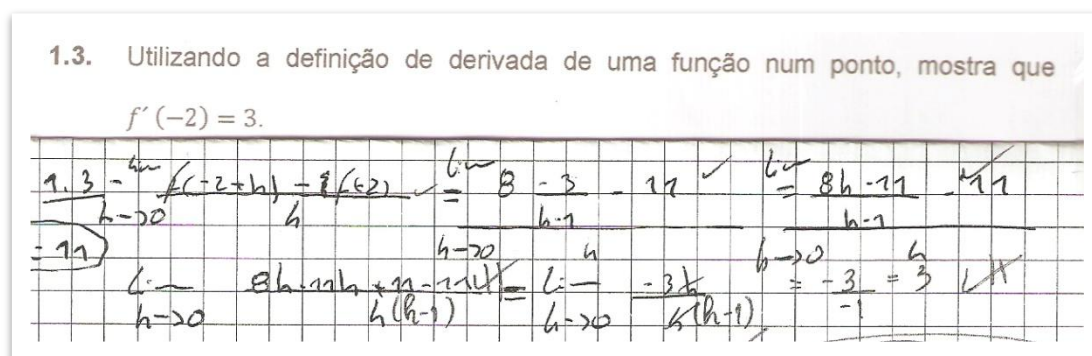 1.3. Utilizando a definição de derivada de uma função num ponto, mostra que
f´(−2) = 3.
1.3 - lim h->0 f(-2+h) - f(-2) / h = lim h->0 (8 - 3/(h-1) - 11) / h = lim h->0 ((8h-11)/(h-1) - 11) / h
= 11)
lim h->0 8h-11h+11-11 / h(h-1) = lim h->0 -3h / h(h-1) = -3/-1 = 3